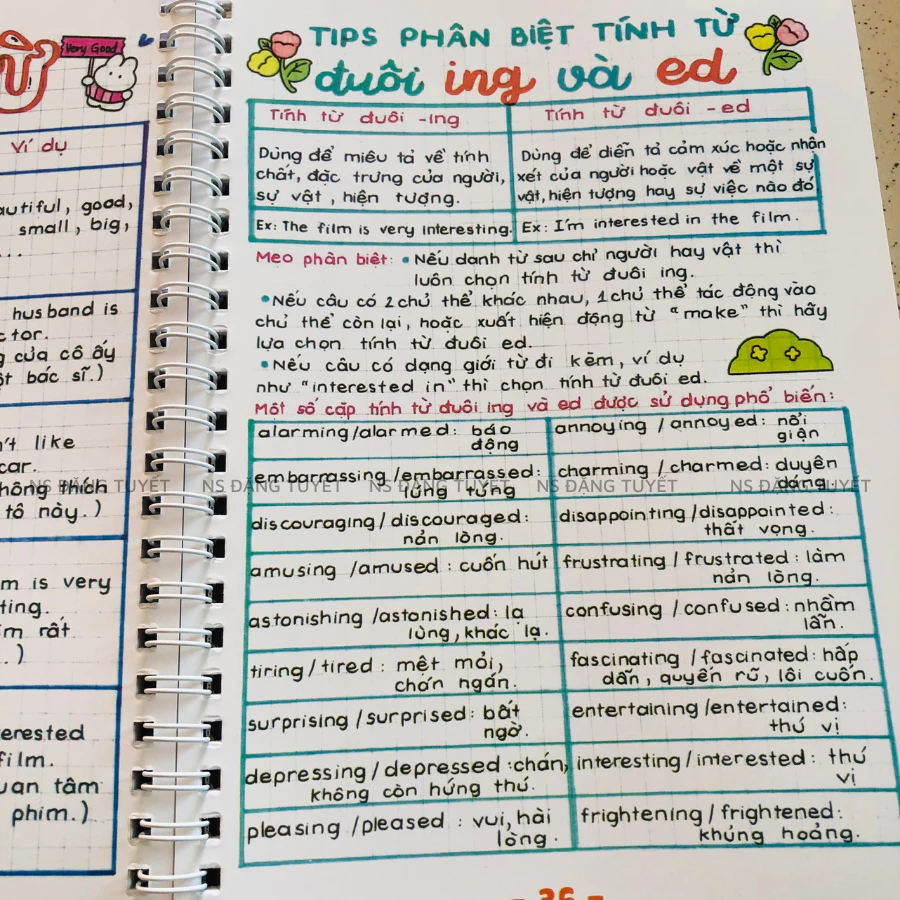 Very Good
Ví dụ
autiful, good,
small, big,
...
husband is
ctor.
g của cô ấy
ột bác sĩ.)
n't like
car.
hông thích
tô này.)
m is very
ting.
im rất
.)
erested
film.
uan tâm
phim.)
TIPS PHÂN BIỆT TÍNH TỪ
đuôi ing và ed
Tính từ đuôi -ing
Tính từ đuôi -ed
Dùng để miêu tả về tính
chất, đặc trưng của người,
sự vật, hiện tượng.
Dùng để diễn tả cảm xúc hoặc nhận
xét của người hoặc vật về một sự
vật, hiện tượng hay sự việc nào đó
Ex: The film is very interesting.
Ex: I'm interested in the film.
Mẹo phân biệt: •Nếu danh từ sau chỉ người hay vật thì
luôn chọn tính từ đuôi ing.
•Nếu câu có 2 chủ thể khác nhau, 1 chủ thể tác động vào
chủ thể còn lại, hoặc xuất hiện động từ "make" thì hãy
lựa chọn tính từ đuôi ed.
•Nếu câu có dạng giới từ đi kèm, ví dụ
như "interested in" thì chọn tính từ đuôi ed.
Một số cặp tính từ đuôi ing và ed được sử dụng phổ biến:
alarming/alarmed: báo
động
annoying / annoyed: nổi
giận
embarrassing /embarrassed:
lúng túng
charming / charmed: duyên
dáng.
NS ĐẶNG TUYẾT NS ĐẶNG TUYẾT NS ĐẶNG TUYẾT NS ĐẶNG TUYẾT NS ĐẶNG TUYẾT
discouraging / discouraged:
nản lòng.
disappointing /disappointed:
thất vọng.
amusing /amused: cuốn hút
frustrating / frustrated: làm
nản lòng.
astonishing /astonished: lạ
lùng, khác lạ.
confusing / confused: nhầm
lẫn.
tiring/tired: mệt mỏi,
chán ngán.
fascinating / fascinated: hấp
dẫn, quyến rũ, lôi cuốn.
surprising/surprised: bất
ngờ.
entertaining /entertained:
thú vị
depressing/ depressed: chán,
không còn hứng thú.
interesting/ interested: thú
vị
pleasing /pleased: vui, hài
lòng.
frightening / frightened:
khủng hoảng.
- 36 -